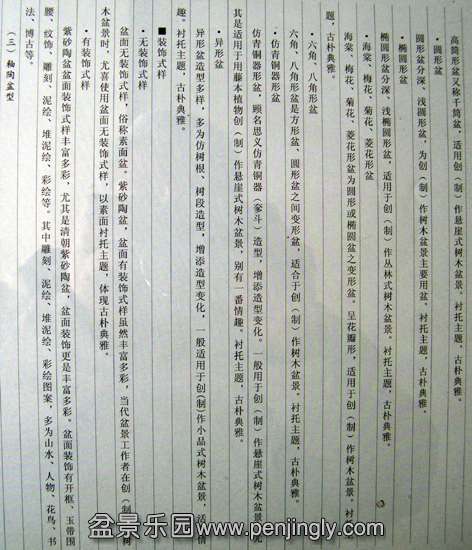 高筒形盆又称千筒盆，适用创（制）作悬崖式树木盆景。衬托主题，古朴典雅。
·圆形盆
圆形盆分深、浅圆形盆，为创（制）作树木盆景主要用盆，衬托主题，古朴典雅。
·椭圆形盆
椭圆形盆分深、浅椭圆形盆，适用于创（制）作丛林式树木盆景。衬托主题，古朴典雅。
·海棠、梅花、菊花、菱花形盆
海棠、梅花、菊花、菱花形盆为圆形或椭圆盆之变形盆。呈花瓣形，适用于创（制）作树木盆景。衬托主
题，古朴典雅。
·六角、八角形盆
六角、八角形盆是方形盆、圆形盆之间变形盆，适合于创（制）作树木盆景。衬托主题，古朴典雅。
·仿青铜器形盆
仿青铜器形盆，顾名思义仿青铜器（斗）造型，增添造型变化。一般用于创（制）作悬崖式树木盆景，尤
其是适用于用藤本植物创（制）作悬崖式树木盆景，别有一番情趣。衬托主题，古朴典雅。
·异形盆
异形盆造型多样，多为仿树根、树段造型，增添造型变化，一般适用于创（制）作小品式树木盆景，活泼情
趣。衬托主题，古朴典雅。
■装饰式样
·无装饰式样
盆面无装饰式样，俗称素面盆。紫砂陶盆，盆面有装饰式样虽然丰富多彩，当代盆景工作者在创（制）作树
木盆景时，尤喜使用盆面无装饰式样，以素面衬托主题，体现古朴典雅。
·有装饰式样
紫砂陶盆盆面装饰式样丰富多彩，尤其是清朝紫砂陶盆，盆面装饰更是丰富多彩。盆面装饰有开框、玉带围
腰、纹饰、雕刻、泥绘、堆泥绘、彩绘等。其中雕刻、泥绘、堆泥绘、彩绘图案，多为山水、人物、花鸟、书
法、博古等。
（三）釉陶盆型
盆景乐园www.penjingly.com